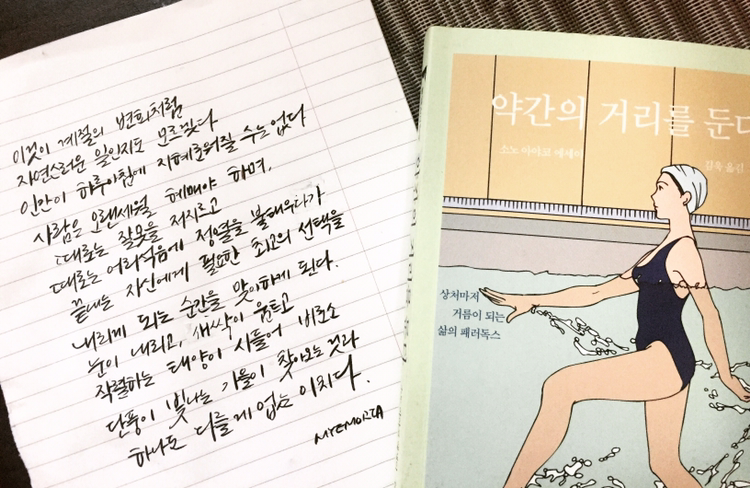 이것이 계절의 변화처럼
자연스러운 일인지도 모르겠다
인간이 하루아침에 지혜로워질 수는 없다
사람은 오랜세월 헤매야 하며,
때로는 잘못을 저지르고
때로는 어리석음에 정열을 불태우다가
끝내는 자신에게 필요한 최고의 선택을
내리게 되는 순간을 맞이하게 된다.
눈이 내리고, 새싹이 움트고
작렬하는 태양이 시들어 비로소
단풍이 빛나는 가을이 찾아오는 것과
하나도 다를 게 없는 이치다.
약간의 거리를 둔다
소노 아야코 에세이
김욱 옮김
상처마저
거름이 되는
삶의 패러독스